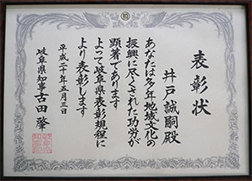 表彰状
井戸誠嗣殿
あなたは多年地域文化の
振興に尽くされた功労が
顕著であります
よつて岐阜県表彰規程に
より表彰します
平成二十年五月三日
岐阜県知事古田肇